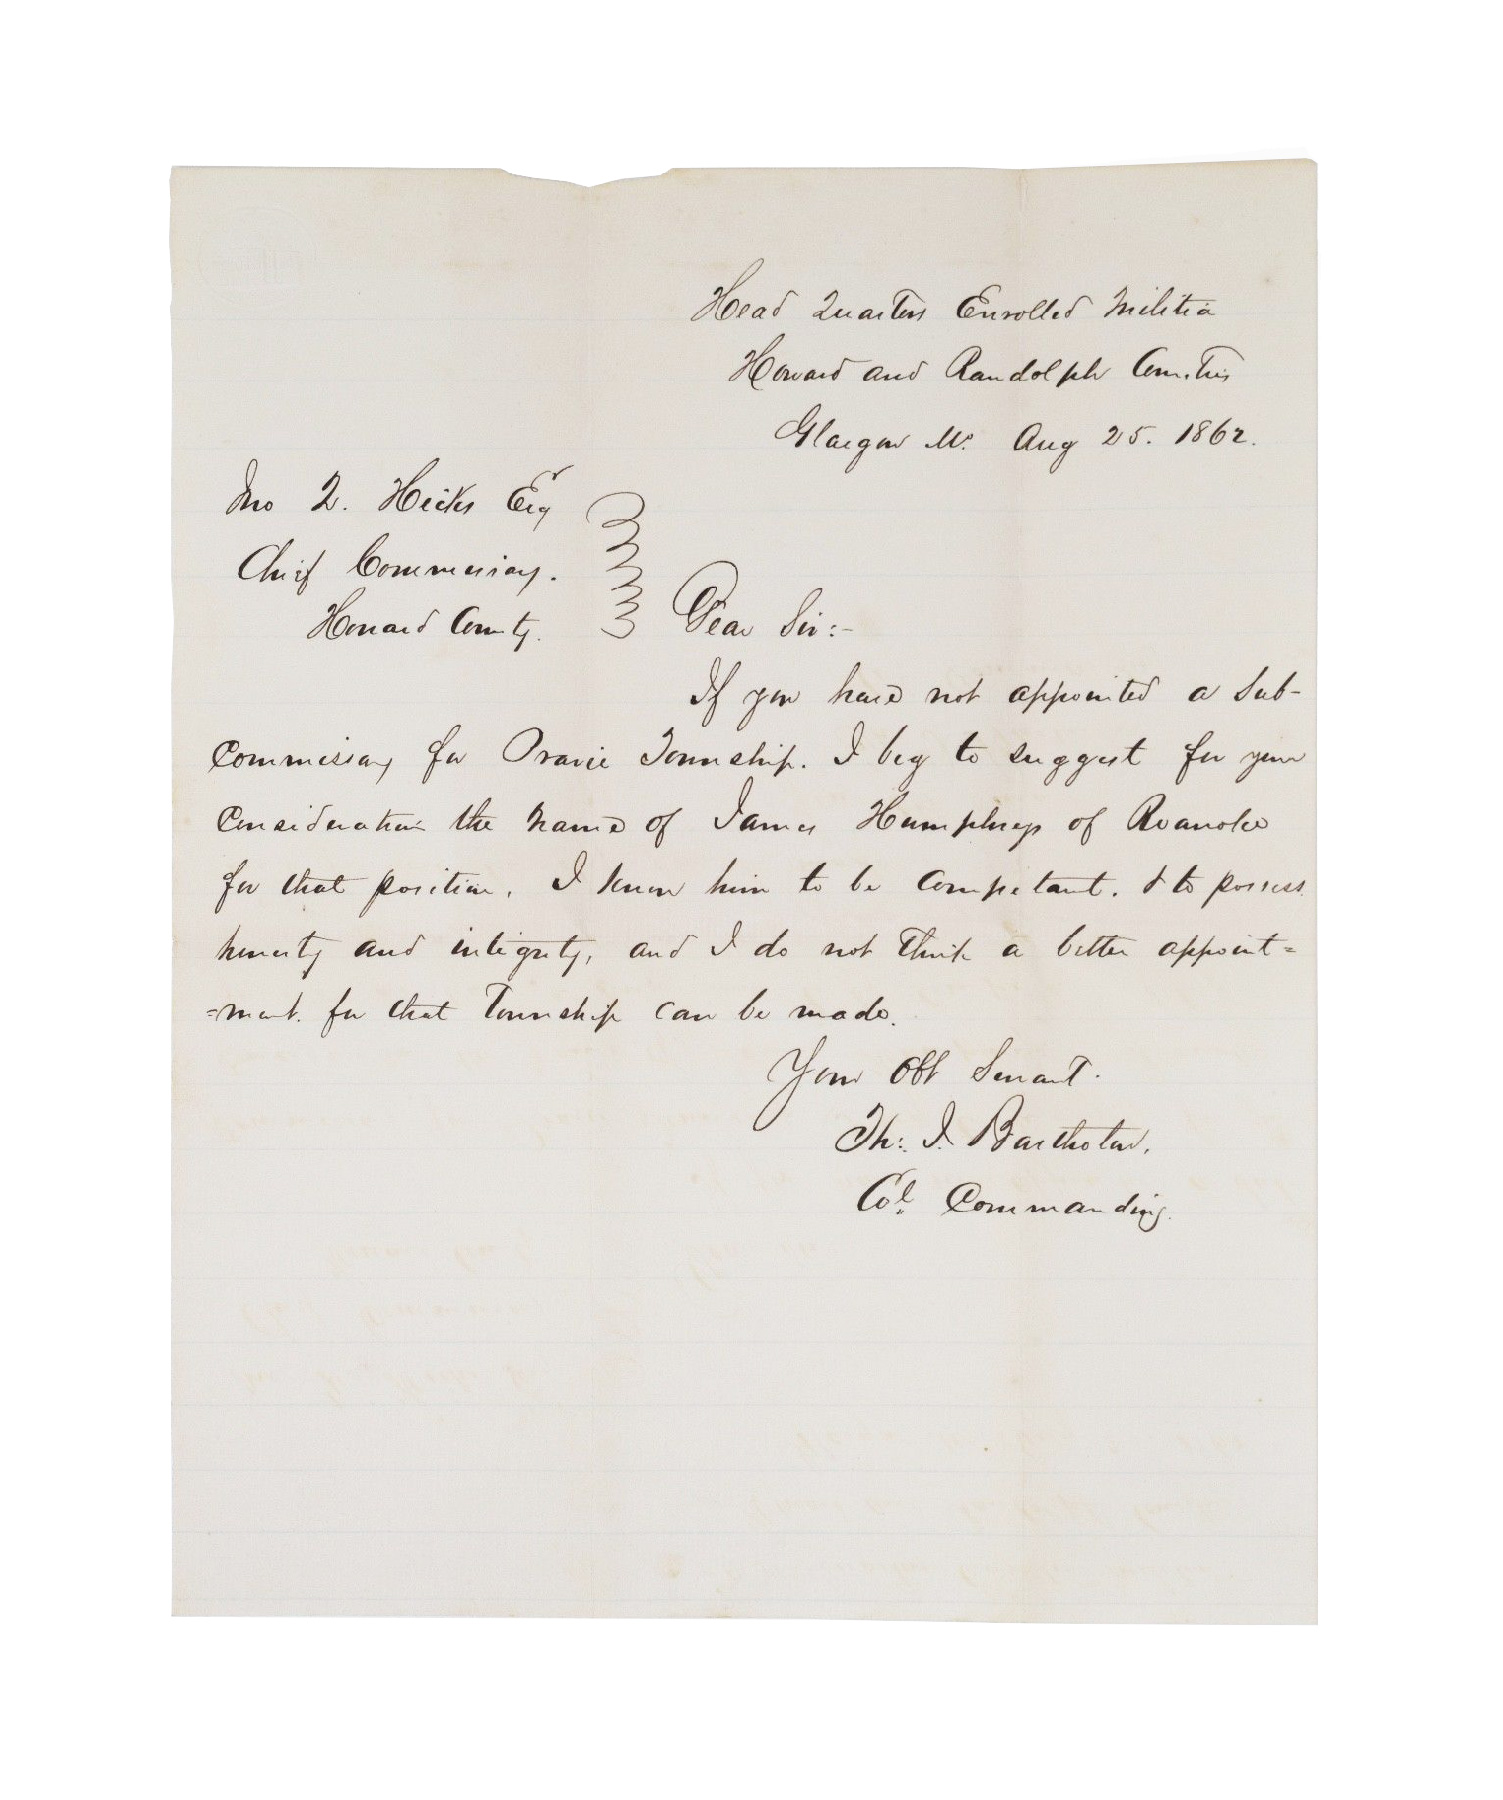 Head Quarters Enrolled Militia
Howard and Randolph Counties
Glasgow Mo. Aug 25. 1862.
Jno Q. Hicks Esqr
Chief Commissary.
Howard County.
Dear Sir:-
If you have not appointed a Sub-
Commissary for Praric Township. I beg to suggest for your
Consideration the name of James Humphreys of Roanoke
for that position. I know him to be Competant. & to possess
honesty and integrity, and I do not think a better appoint=
=ment. for that Township can be made.
Your Obt Servant.
Th: J. Bartholow.
Col. Commanding.